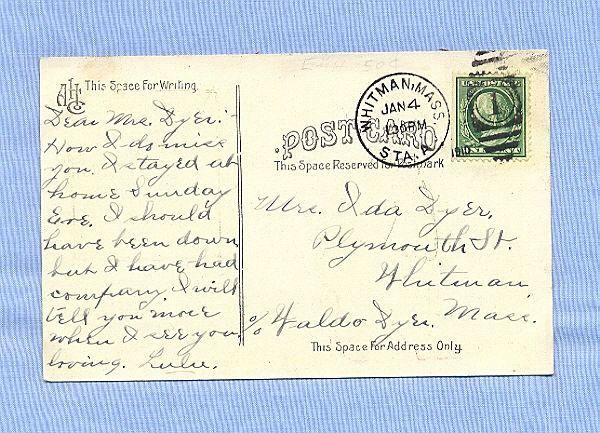 AHC
This Space For Writing.
Dear Mrs. Dyer:-
How I do miss
you. I stayed at
home Sunday
Eve. I should
have been down
but I have had
company. I will
tell you more
when I see you
loving. Lulu.
POST CARD
This Space Reserved for Postmark
WHITMAN. MASS.
JAN 4
130PM
1910
STA. A.
1
Mrs. Ida Dyer,
Plymouth St.
Whitman
Mass.
c/o Waldo Dyer.
This Space For Address Only.